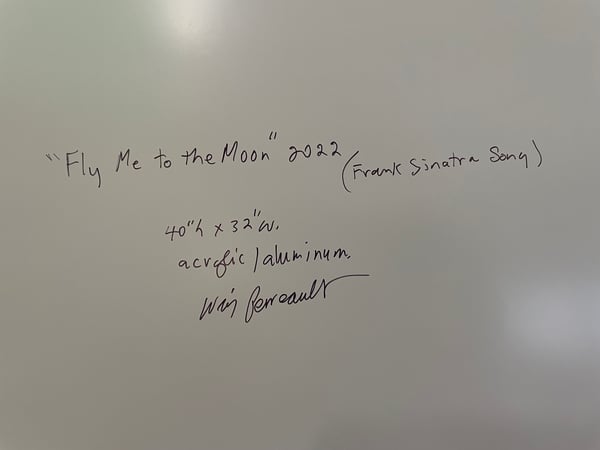 "Fly Me to the Moon" 2022 (Frank Sinatra Song)
40"h x 32"w.
acrylic / aluminum.
Perreault